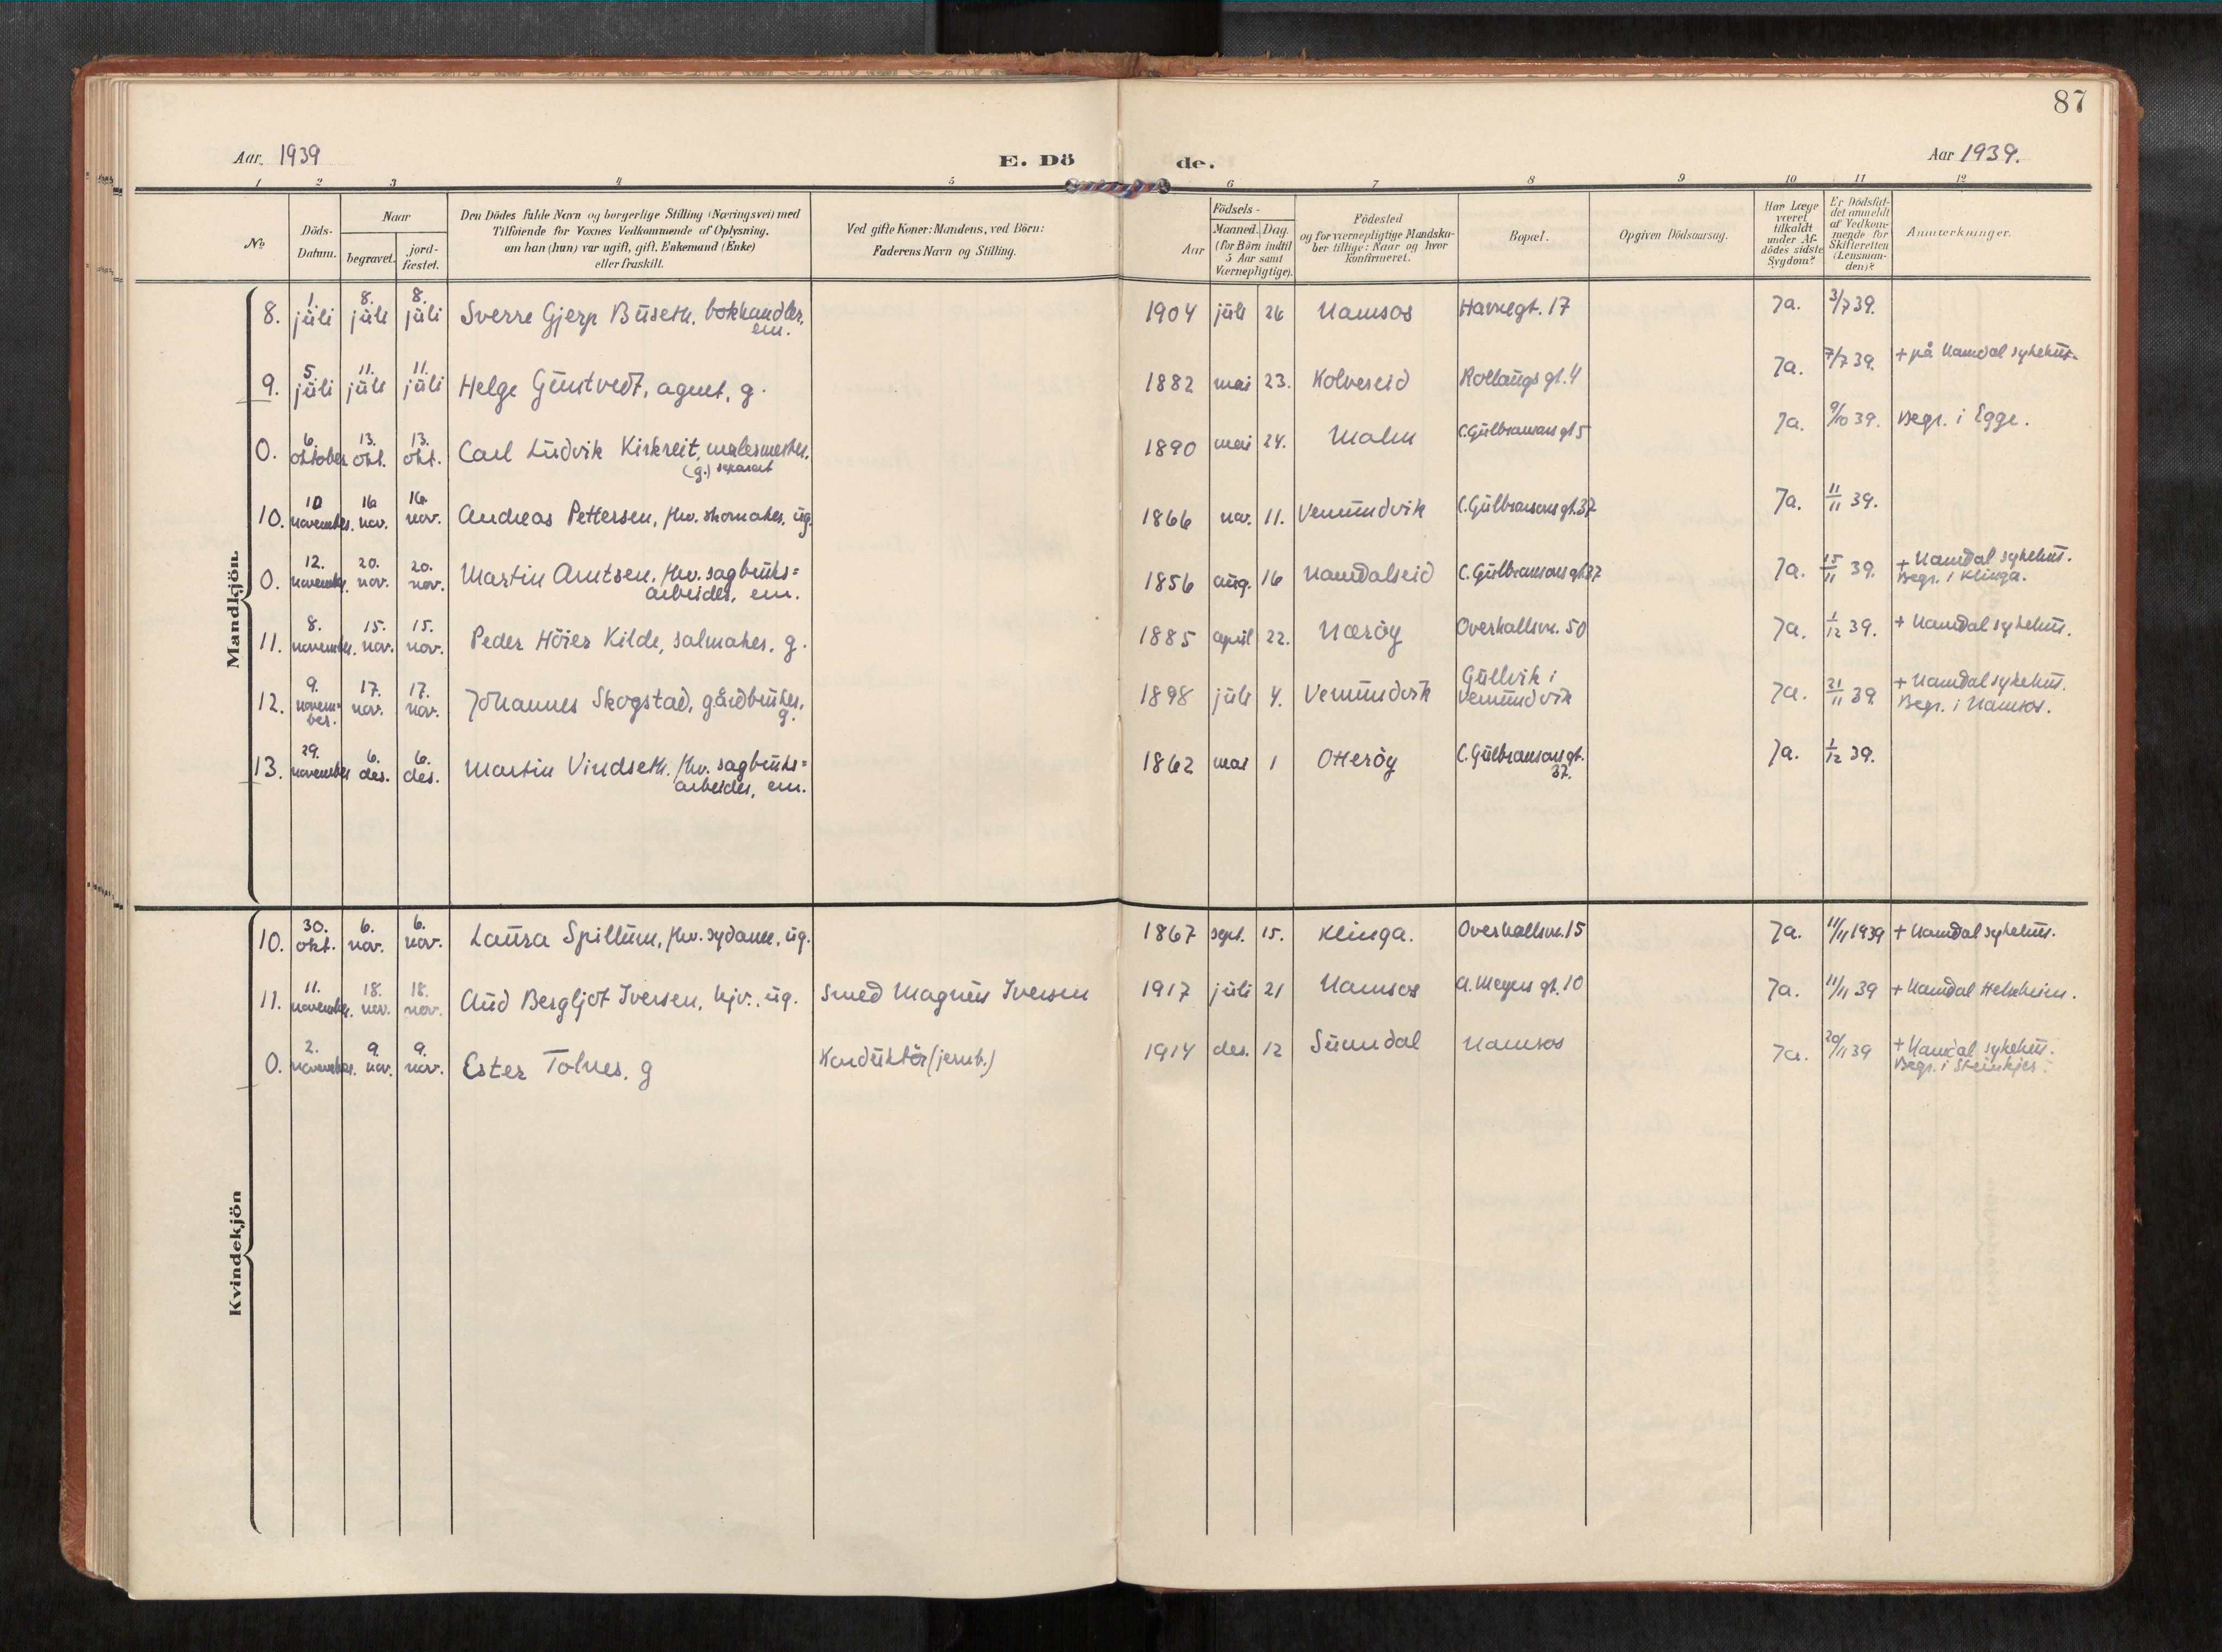 87
Aar. 1939
E. Dö
de.
Aar 1939.
1 2 3 4 5 6 7 8 9 10 11 12
No
Döds-
Datum.
Naar
begravet.
jord-
fæstet.
Den Dödes fulde Navn og borgerlige Stilling (Næringsvei) med
Tilföiende for Voxnes Vedkommende af Oplysning,
om han (hun) var ugift, gift, Enkemand (Enke)
eller fraskilt.
Ved gifte Koner: Mandens, ved Börn:
Faderens Navn og Stilling.
Födsels-
Aar
Maaned. Dag.
(for Börn indtil
5 Aar samt
Værnepligtige).
Födested
og for værnepligtige Mandska-
ber tillige: Naar og hvor
konfirmeret.
Bopæl.
Opgiven Dödsaarsag.
Har Læge
været
tilkaldt
under Af-
dödes sidste
Sygdom?
Er Dödsfal-
det anmeldt
af Vedkom-
mende for
Skifteretten
(Lensman-
den)?
Anmærkninger.
Mandkjön.
8. 1. juli 8. juli 8. juli Sverre Gjerp Buseth, bokhandler, em. 1904 juli 26 Namsos Havnegt. 17 Ja. 3/7 39.
9. 5. juli 11. juli 11. juli Helge Gustvedt, agent, g. 1882 mai 23. Kolvereid Rollaugs gt. 4 Ja. 7/7 39. + på Namdal sykehus.
0. 6. oktober 13. okt. 13. okt. Carl Ludvik Kirkreit, malermester, (g.) separert 1890 mai 24. Malm C. Gulbransons gt 5 Ja. 9/10 39. Begr. i Egge.
10. 10 november. 16 nov. 16. nov. Andreas Pettersen, fhv. skomaker, ug. 1866 nov. 11. Vemundvik C. Gulbransons gt. 37 Ja. 11/11 39.
0. 12. november. 20. nov. 20. nov. Martin Arntsen, fhv. sagbruks=
arbeider, em. 1856 aug. 16 Namdalseid C. Gulbransons gt 37 Ja. 15/11 39. + Namdal sykehus.
Begr. i Klinga.
11. 8. november. 15. nov. 15. nov. Peder Höier Kilde, salmaker, g. 1885 april 22. Nærøy Overhallsv. 50 Ja. 1/12 39. + Namdal sykehus.
12. 9. novem=
ber. 17. nov. 17. nov. Johannes Skogstad, gårdbruker, g. 1898 juli 4. Vemundvik Gullvik i
Vemundvik Ja. 21/11 39. + Namdal sykehus.
Begr. i Namsos.
13. 29. november 6. des. 6. des. Martin Vindseth, fhv. sagbruks=
arbeider, em. 1862 mai 1 Otterøy C. Gulbransons gt. 37. Ja. 1/12 39.
Kvindekjön
10. 30. okt. 6. nov. 6. nov. Laura Spillum, fhv. sydame, ug. 1867 sept. 15. Klinga. Overhallsv. 15 Ja. 11/11 1939 + Namdal sykehus.
11. 11. november. 18. nov. 18. nov. Aud Bergljot Iversen, hjv., ug. Smed Magnus Iversen 1917 juli 21 Namsos A. Meyers gt. 10 Ja. 11/11 39 + Namdal Helseheim.
0. 2. november. 9. nov. 9. nov. Ester Tolnes, g Konduktör (jernb.) 1914 des. 12 Sunndal Namsos Ja. 20/11 39 + Namdal sykehus.
Begr. i Steinkjer.